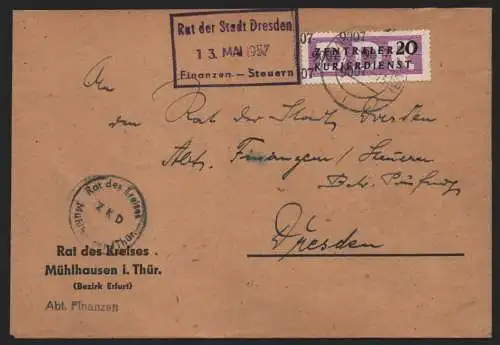 Rat der Stadt Dresden
13. MAI 1957
Finanzen — Steuern
ZENTRALER 20
KURIERDIENST
An
den Rat der Stadt Dresden
Abt. Finanzen / Steuern
Betr. Prüfung
Dresden
Rat des Kreises
ZKD
Mühlh Thür.
Rat des Kreises
Mühlhausen i. Thür.
(Bezirk Erfurt)
Abt. Finanzen